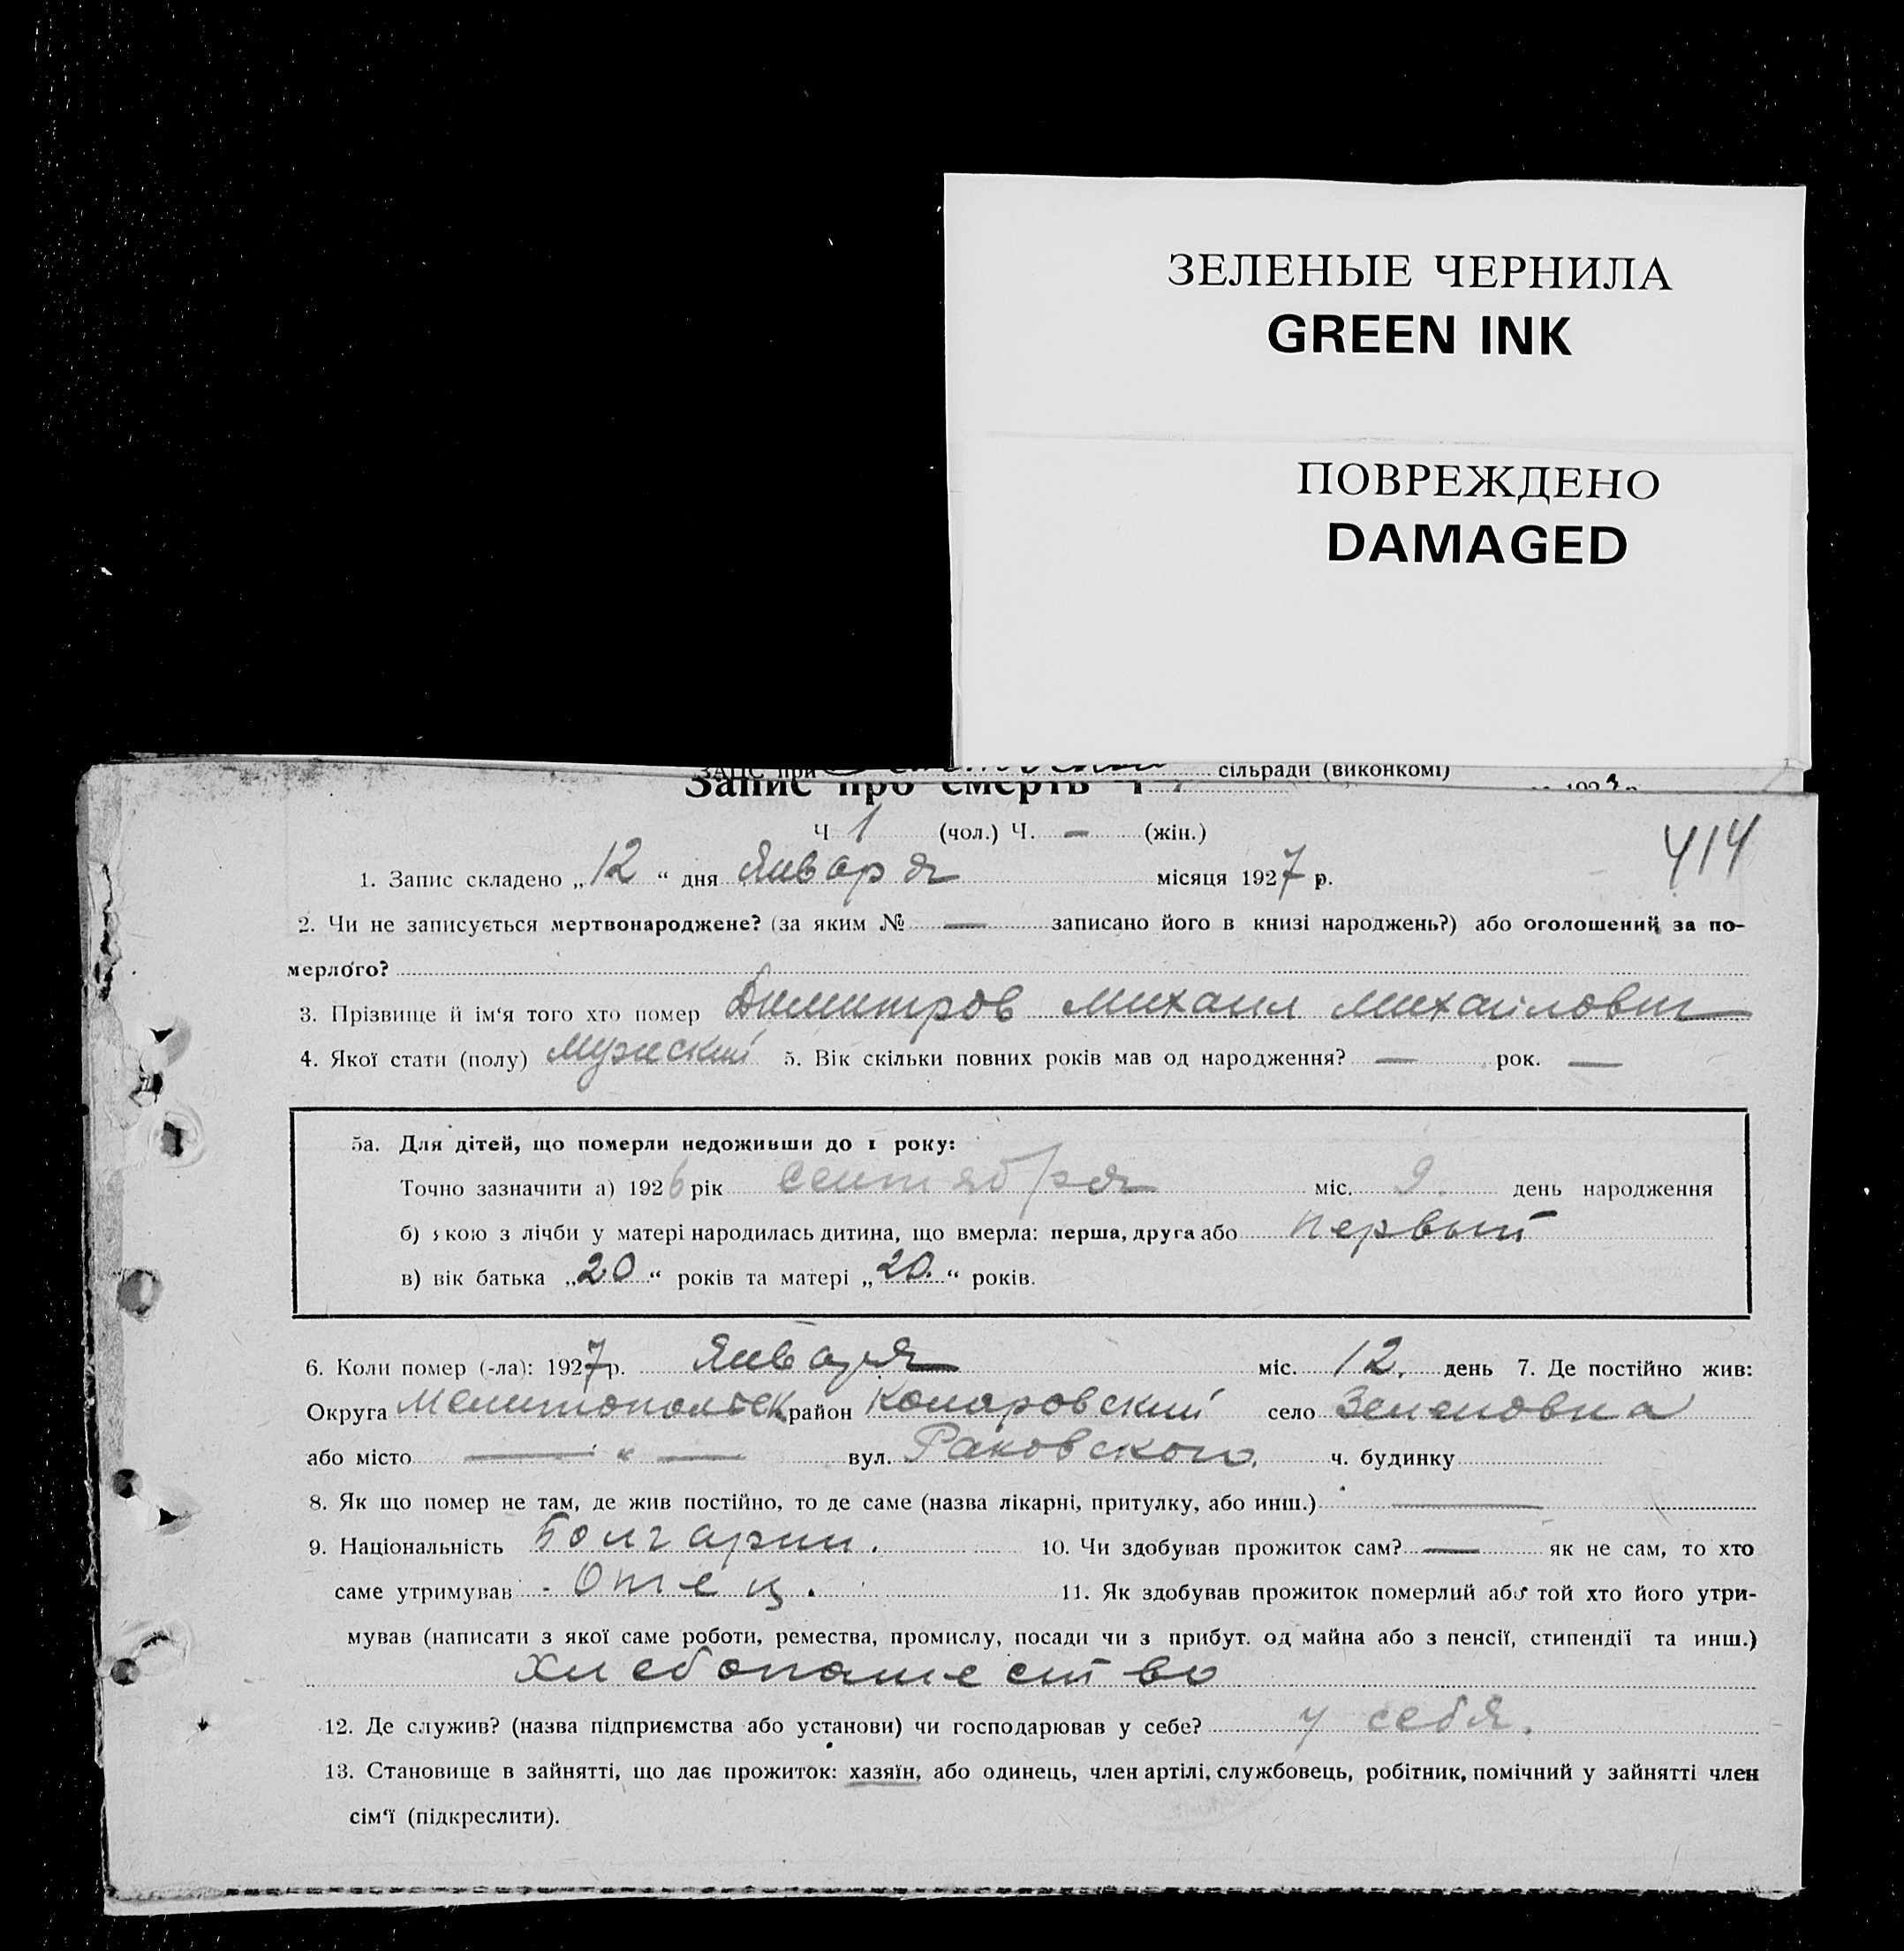 ЗЕЛЕНЫЕ ЧЕРНИЛА
GREEN INK
ПОВРЕЖДЕНО
DAMAGED
ЗАПС при сільради (виконкомі)
Запис про смерть Ч
Ч 1 (чол.) Ч. — (жін.)
414
1. Запис складено „12“ дня Января місяця 1927 р.
2. Чи не записується мертвонароджене? (за яким № — записано його в книзі народжень?) або оголошений за по-
мерлого?
3. Прізвище й ім‘я того хто помер Димитров Михаил Михайлович
4. Якої стати (полу) Мужеский 5. Вік скільки повних років мав од народження? — рок. —
5а. Для дітей, що померли недоживши до 1 року:
Точно зазначити а) 1926 рік Сентября міс. 9. день народження
б) якою з лічби у матері народилась дитина, що вмерла: перша, друга або первый
в) вік батька „20“ років та матері „20.“ років.
6. Коли помер (-ла): 1927 р. Января міс. 12. день 7. Де постійно жив:
Округа Мелитопольск район Коларовский село Зеленовка
або місто — “ — вул. Раковского. ч. будинку
8. Як що помер не там, де жив постійно, то де саме (назва лікарні, притулку, або инш.) —
9. Національність Болгарин. 10. Чи здобував прожиток сам? — як не сам, то хто
саме утримував - Отец. 11. Як здобував прожиток померлий або той хто його утри-
мував (написати з якої саме роботи, ремества, промислу, посади чи з прибут. од майна або з пенсії, стипендії та инш.)
Хлебопашество
12. Де служив? (назва підприємства або установи) чи господарював у себе? у себя.
13. Становище в зайнятті, що дає прожиток: хазяїн, або одинець, член артілі, службовець, робітник, помічний у зайнятті член
сім‘ї (підкреслити).